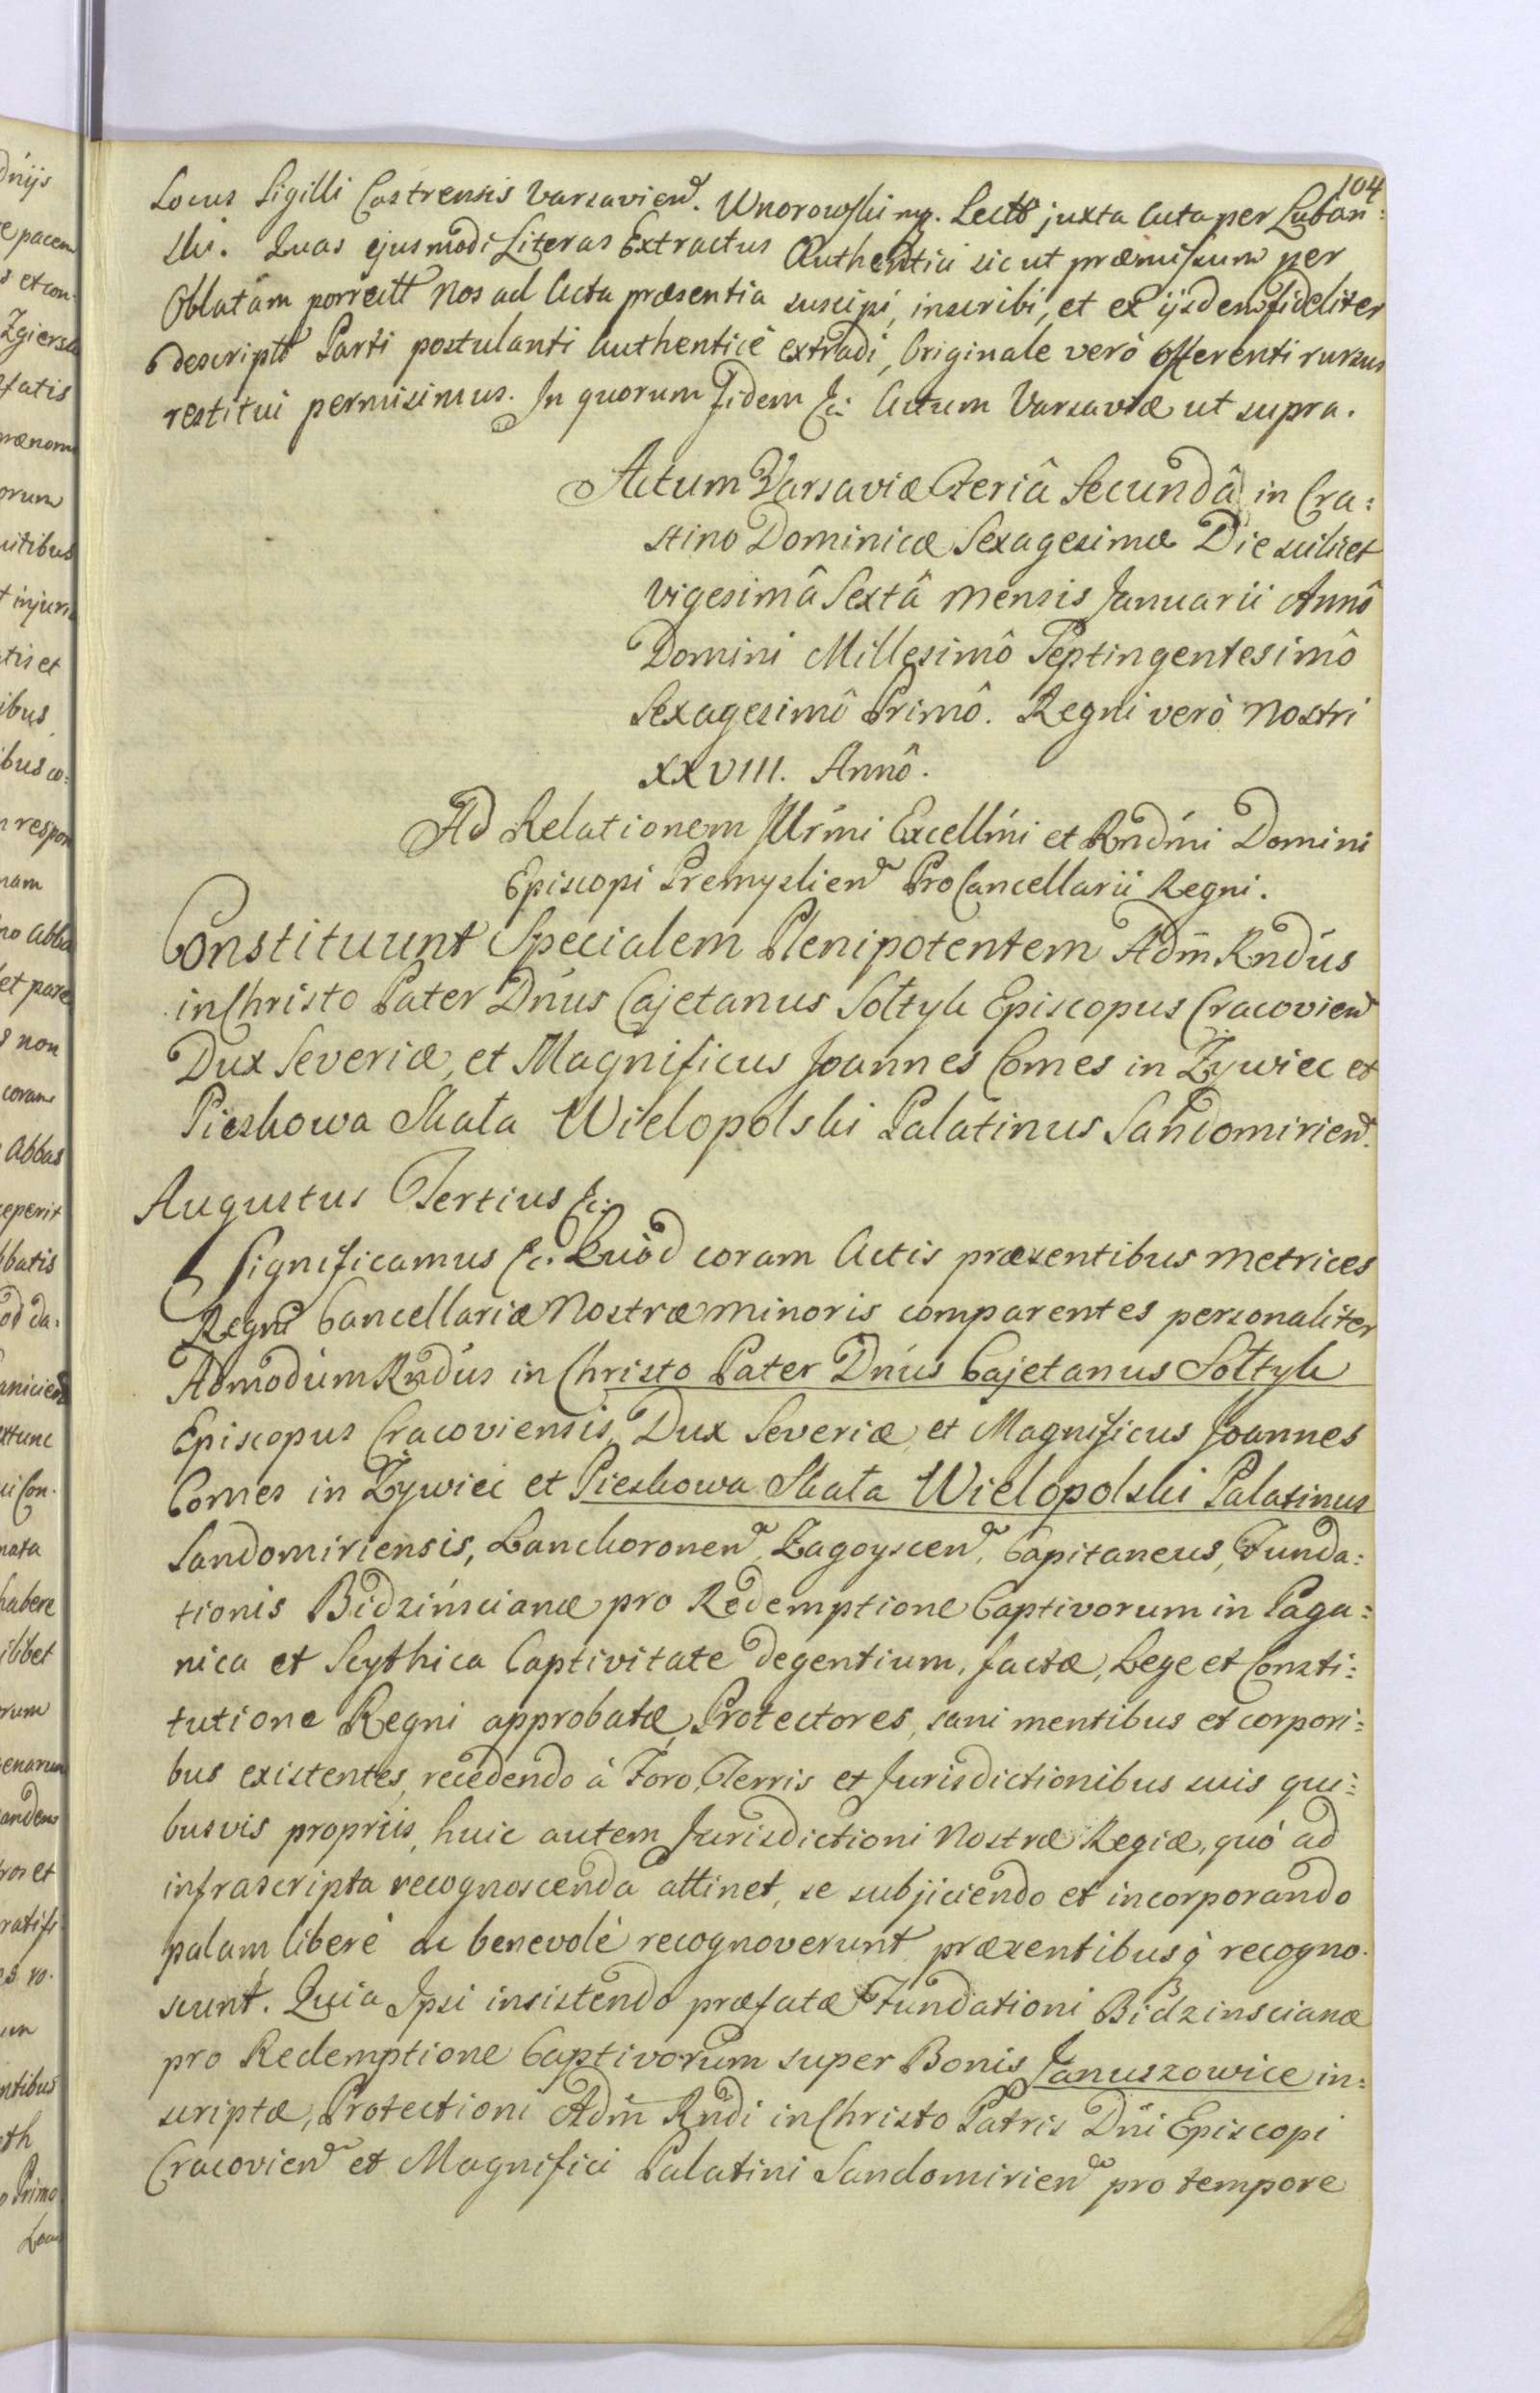 104
Locus Sigilli Castrensis Varsavien. Wnorowski mp. Lect. juxta Acta per Luban=
ski. Quas ejusmodi Literas Extractus Authentici sicut præmissum per
Oblatam porrectt Nos ad Acta præsentia suscipi, inscribi, et ex ijsdem fideliter
descriptt Parti postulanti Authenticè extradi, Originale verò Offerenti rursus
restitui permisimus. In quorum fidem &c: Actum Varsaviæ ut supra.
Actum Varsaviæ Feriâ Secundâ in Cra=
stino Dominicæ Sexagesimæ Die scilicet
vigesimâ Sextâ Mensis Januarii Annô
Domini Millesimô Septingentesimô
Sexagesimô Primô. Regni verò Nostri
XXVIII. Annô.
Ad Relationem Illrm̃i Excellm̃i et Rndm̃i Domini
Episcopi Premyslien ProCancellarii Regni.
Constituunt Specialem Plenipotentem Adm̃ Rndús
in Christo Pater Dnús Cajetanus Sołtyk Episcopus Cracovien
Dux Severiæ, et Magnificus Joannes Comes in Zywiec et
Pieskowa Skała Wielopolski Palatinus Sandomirien.
Augustus Tertius &c:
Significamus &c. Quiòd coram Actis præsentibus Metrices
Regni Cancellariæ Nostræ Minoris comparentes personaliter
Admodúm Rndús in Christo Pater Dnús Cajetanus Sołtyk
Episcopus Cracoviensis, Dux Severiæ, et Magnificus Joannes
Comes in Zywiec et Pieskowa Skała Wielopolski Palatinus
Sandomiriensis, Lanckoronen, Zagoyscen, Capitaneus, Funda=
tionis Bidzińscianæ pro Redemptione Captivorum in Paga=
nica et Scythica Captivitate degentium, factæ, Lege et Consti=
tutione Regni approbatæ, Protectores, sani mentibus et corpori=
bus existentes, recedendo à Foro, Terris et Jurisdictionibus suis qui=
busvis propriis, huic autem Jurisdictioni Nostræ Regiæ, quó ad
infrascripta recognoscenda attinet, se subjiciendo et incorporando
palam, liberè ac benevolè recognoverunt præsentibusq̀ recogno=
scunt. Quia Ipsi insistendo præfatæ Fundationi Bidzinscianæ
pro Redemptione Captivorum super Bonis Januszowice in=
scriptæ, Protectioni Adm̃ Rndi in Christo Patris Dnĩ Episcopi
Cracovien et Magnifici Palatini Sandomirien pro tempore